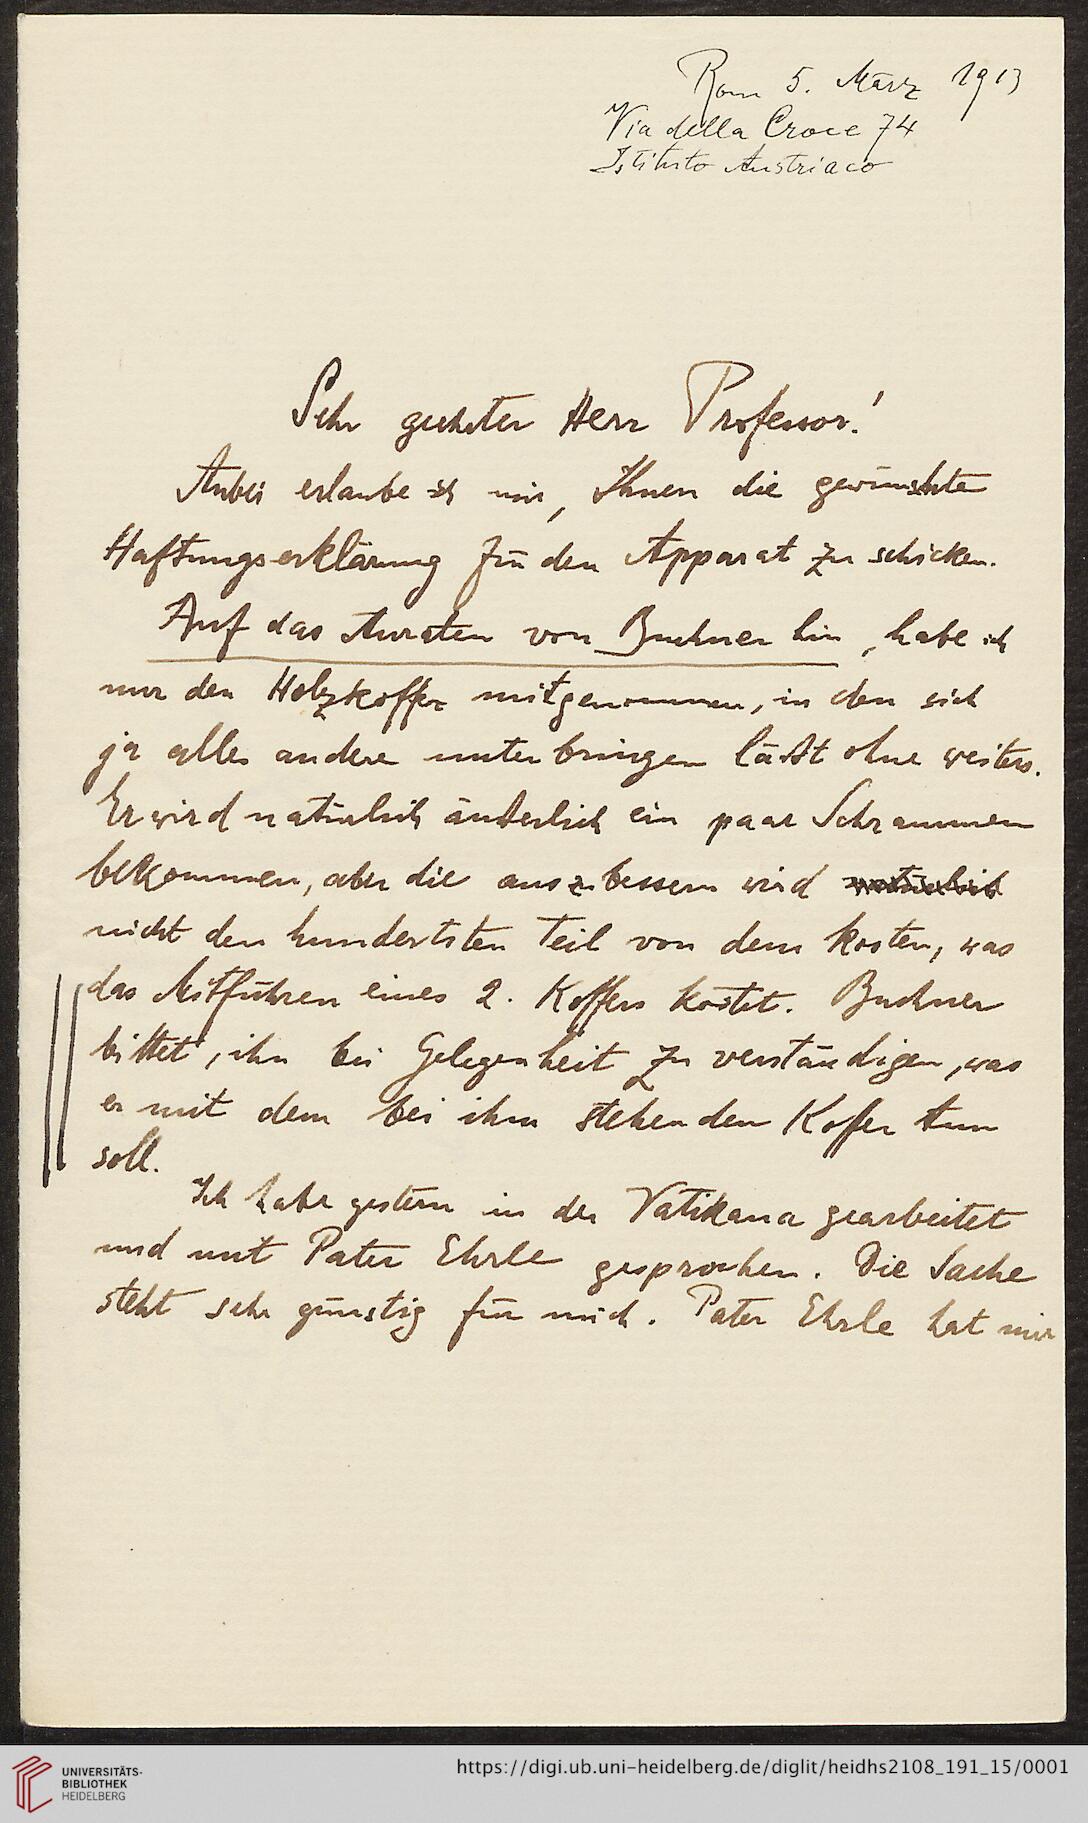 Rom 5. März 1913
Via della Croce 74
Istituto Austriaco
Sehr geehrter Herr Professor!
Anbei erlaube ich mir, Ihnen die gewünschte
Haftungserklärung für den Apparat zu schicken.
Auf das Anraten von Buchner hin, habe ich
nur den Holzkoffer mitgenommen, in den sich
ja alles andere unterbringen läßt ohne weiters.
Er wird natürlich äußerlich ein paar Schrammen
bekommen, aber die auszubessern wird natürlich
nicht den hundertsten Teil von dem kosten, was
das Mitführen eines 2. Koffers kostet. Buchner
bittet, ihn bei Gelegenheit zu verständigen, was
er mit dem bei ihm stehenden Koffer tun
soll.
Ich habe gestern in der Vatikana gearbeitet
und mit Pater Ehrle gesprochen. Die Sache
steht sehr günstig für mich. Pater Ehrle hat mir
UNIVERSITÄTS-
BIBLIOTHEK
HEIDELBERG
https://digi.ub.uni-heidelberg.de/diglit/heidhs2108_191_15/0001